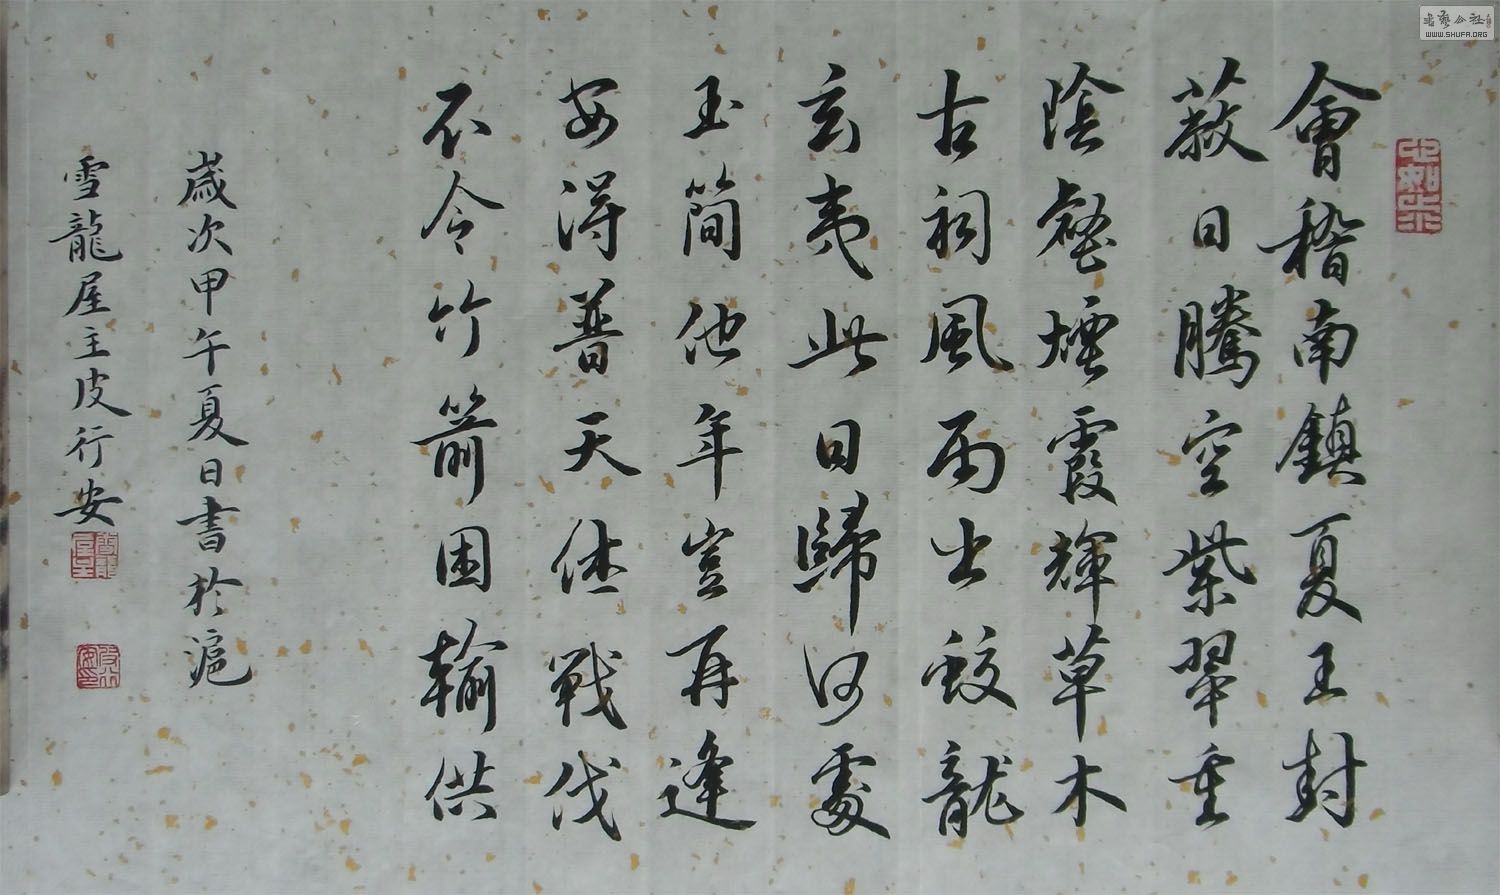 會稽南鎮夏王封
蔽日騰空紫翠重
陰壑煙霞輝草木
古祠風雨出蛟龍
玄夷此日歸何處
玉簡他年豈再逢
安得普天休戰伐
不令竹箭困輸供
歲次甲午夏日書於滬
雪龍屋主皮行安
書藝公社
WWW.SHUFA.ORG